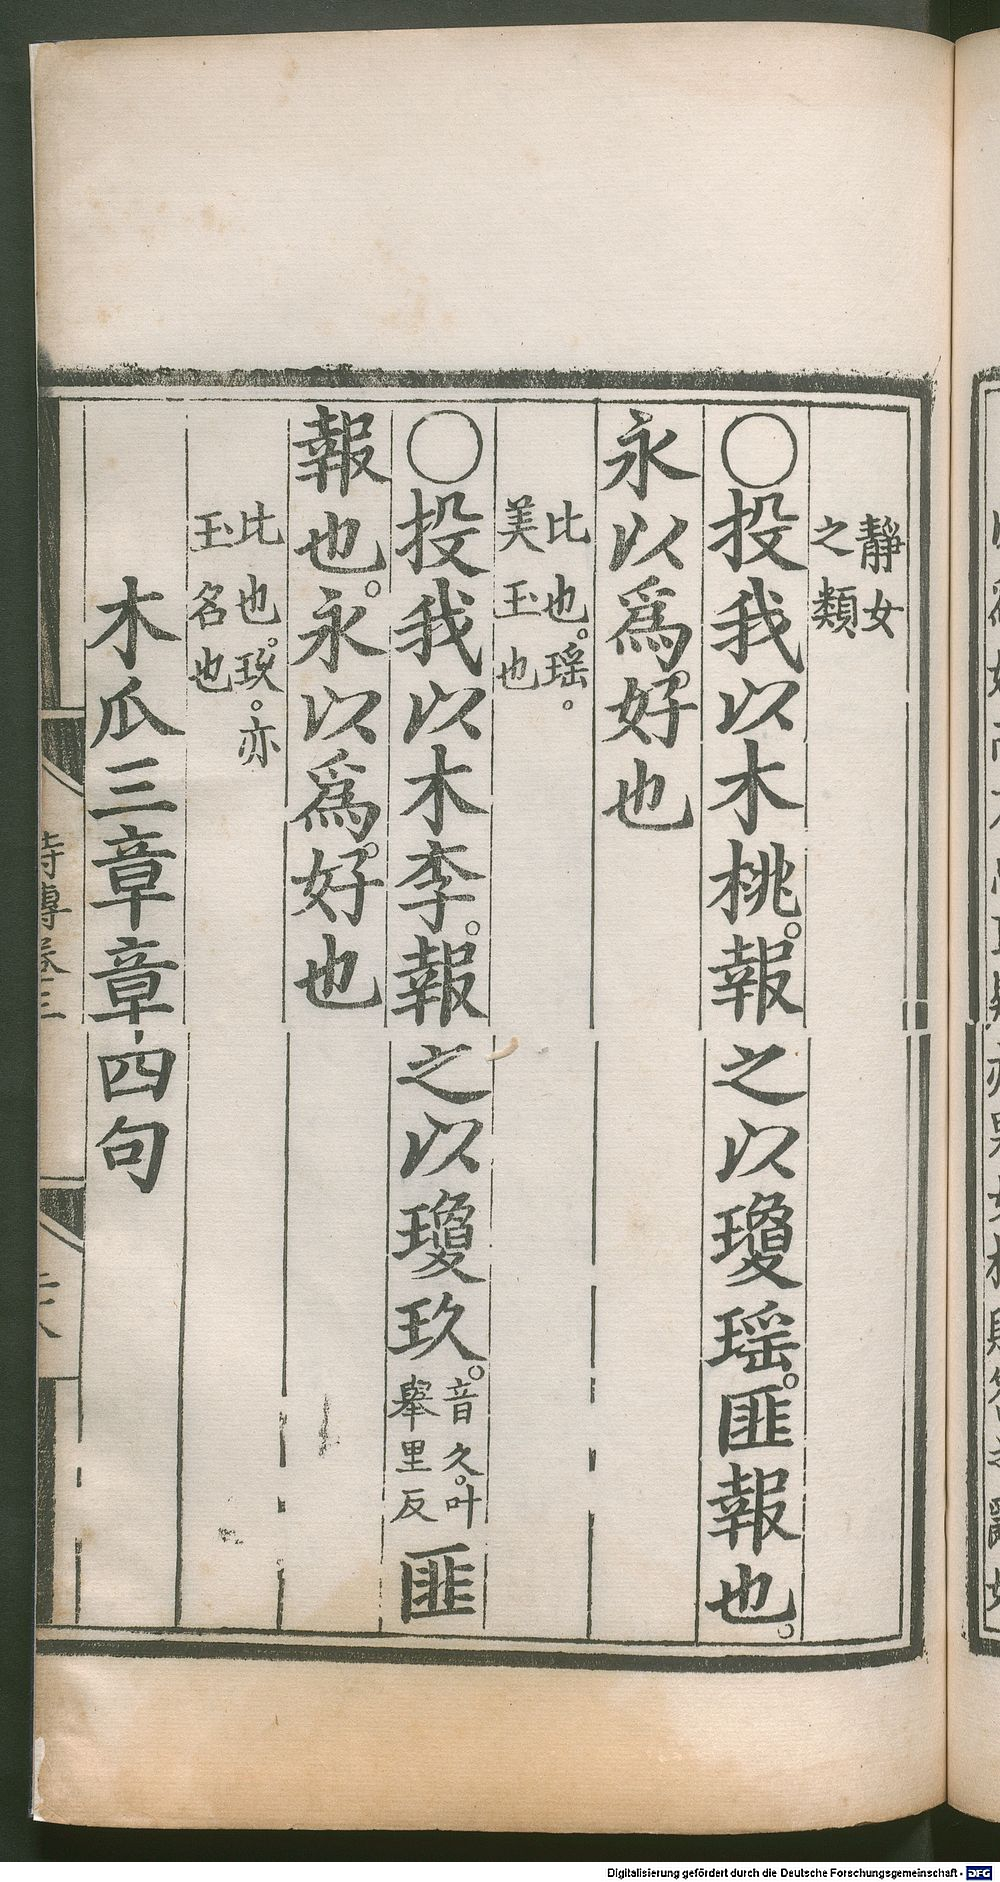 靜女
之類
○投我以木桃。報之以瓊瑶。匪報也。
永以爲。好也
比也。瑶。
美玉也
○投我以木李。報之以瓊玖。音久。叶舉里反匪
報也。永以爲。好也
比也。玖。亦
玉名也
木瓜三章章四句
詩傳卷三
Digitalisierung gefördert durch die Deutsche Forschungsgemeinschaft - DFG